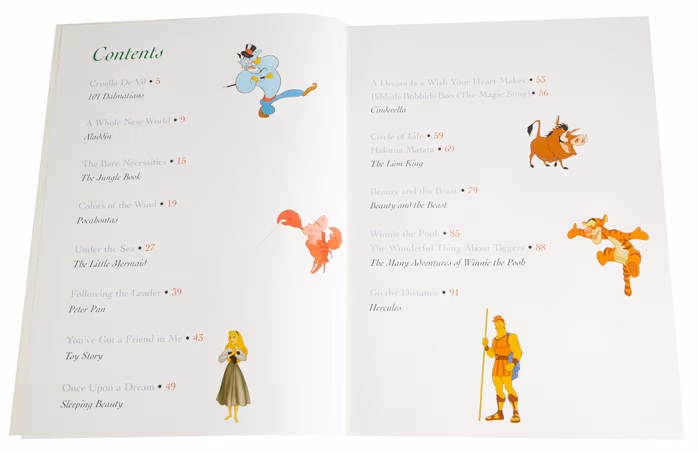 Contents
Cruella De Vil • 5
101 Dalmatians
A Whole New World • 9
Aladdin
The Bare Necessities • 15
The Jungle Book
Colors of the Wind • 19
Pocahontas
Under the Sea • 27
The Little Mermaid
Following the Leader • 39
Peter Pan
You've Got a Friend in Me • 43
Toy Story
Once Upon a Dream • 49
Sleeping Beauty
A Dream Is a Wish Your Heart Makes • 53
Bibbidi-Bobbidi-Boo (The Magic Song) • 56
Cinderella
Circle of Life • 59
Hakuna Matata • 69
The Lion King
Beauty and the Beast • 79
Beauty and the Beast
Winnie the Pooh • 85
The Wonderful Thing About Tiggers • 88
The Many Adventures of Winnie the Pooh
Go the Distance • 91
Hercules